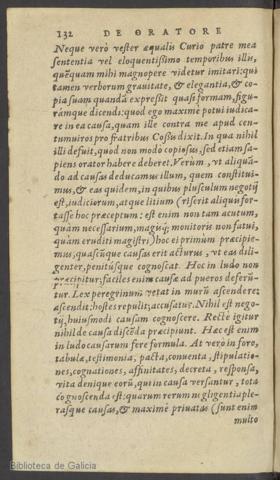 132 DE ORATORE
Neque verò vester æqualis Curio patre mea
sententia vel eloquentissimo temporibus illis,
quẽquam mihi magnopere videtur imitari: qui
tamen verborum grauitate, & elegantia, & co-
pia suam quandã expressit quasi formam, figu-
rámque dicendi: quod ego maximè potui iudica-
re in ea causa, quam ille contra me apud cen-
tumuiros pro fratribus Cossis dixit. In qua nihil
illi defuit, quod non modò copiosus, sed etiam sa-
piens orator habere deberet. Verùm, vt aliquã-
do ad causas deducamus illum, quem constitui-
mus, & eas quidem, in quibus plusculum negotij
est, iudiciorum, atque litium (riserit aliquis for-
tasse hoc præceptum: est enim non tam acutum,
quàm necessarium, magisq́; monitoris non fatui,
quàm eruditi magistri) hoc ei primùm præcipie-
mus, quascũque causas erit acturus, vt eas dili-
genter, penitúsque cognoscat. Hoc in ludo non
præcipitur: faciles enim causæ ad pueros deferũ-
tur. Lex peregrinum vetat in murũ ascendere:
ascendit: hostes repulit: accusatur. Nihil est nego-
tij, huiusmodi causam cognoscere. Rectè igitur
nihil de causa discẽda præcipiunt. Hæc est enim
in ludo causarum ferè formula. At verò in foro,
tabulæ, testimonia, pacta, conuenta, stipulatio-
nes, cognationes, affinitates, decreta, responsa,
vita denique eorũ, qui in causa versantur, tota
cognoscenda est: quarum rerum negligentia ple-
rasque causas, & maximè priuatas (sunt enim
multo
Biblioteca de Galicia